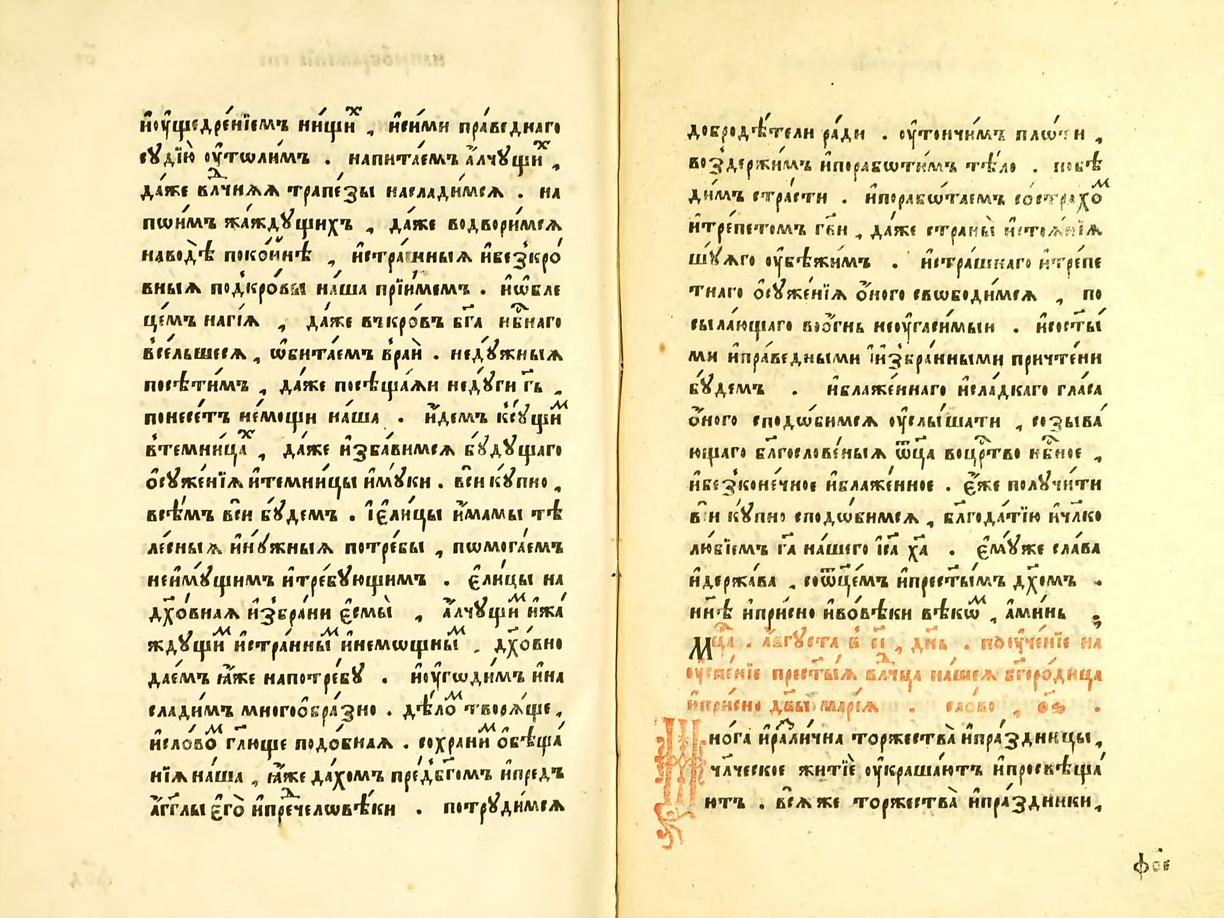 и҆оу҆щедре́нїемъ ни́щиⷯ , и҆си́ми пра́веднаго
сꙋдїю̀ оу҆то́лимъ . напита́емъ а҆́лчꙋщиⷯ ,
да́же влⷣчнꙗꙗ трапе́зы насладимсѧ . на
поимъ жа́ждꙋщихъ , да́же водвори́мсѧ
наво́дѣ поко́йнѣ , и҆стра́нныѧ и҆безкро́
вныѧ подкро́вы на́ша прїи́мемъ . и҆ѡ҆бле
це́мъ наги́ѧ , да́же вчкро́въ бг҃а нбⷭ҇наго
все́льшесѧ , ѡ҆бита́емъ вра́й . недꙋ́жныѧ
посѣти́мъ , да́же посѣща́ѧи недꙋ́ги гь҃ ,
понесе́тъ не́мощи на́ша . и҆́демъ ксꙋ́щиⷨ
втемни́цаⷯ , да́же и҆зба́вимсѧ бꙋ́дꙋщаго
ѡ҆сꙋже́нїѧ и҆темни́цы и҆мꙋ́ки . вси кꙋ́пно ,
всѣ́мъ вси бꙋ́демъ . і҆є҆ли́цы и҆́мамы тѣ
ле́сныѧ и҆нꙋ́жныѧ потре́бы , пѡмога́емъ
неи҆мꙋ́щимъ и҆тре́бꙋющимъ . є҆ли́цы на
дх҃о́внаѧ и҆збра́ни є҆смы̀ , а҆́лчꙋщиⷨ и҆жа́
ждꙋщиⷨ и҆стра́нныⷨ и҆немѡщныⷨ , дх҃о́вно
дае́мъ ꙗ҆́же напотре́бꙋ . и҆оу҆гѡди́мъ и҆на
слади́мъ многоо҆бра́зно . дѣ́лоⷨ творѧ́ще ,
и҆сло́воⷨ гл҃ище подо́бнаѧ . сохрани́ⷨ ѻ҆бѣща́
нїѧ на́ша , ꙗ҆́же да́хомъ пред̾бг҃омъ и҆предъ
а҆́гг҃лы є҆гѡ̀ и҆пречⷣеловѣ́ки . потрꙋди́мсѧ
добродѣ́тели ра́ди . оу҆тончи́мъ пло́ти ,
возде́ржимъ и҆порабѡти́мъ тѣ́ло . побѣ
ди́мъ стра́сти . и҆порабѡ́таемъ состра́хоⷨ
и҆тре́петомъ гв҃и , да́же страны̀ и҆стоѧ́нїѧ
шꙋ́ѧго оу҆бѣжи́мъ . и҆стра́шнаго и҆тре́пе
тнаго ѻ҆сꙋже́нїѧ ѻ҆́ного свободи́мсѧ , по
сыла́ющаго воо҆́гнь неоу҆гаси́мыи . и҆сост҃ы́
ми и҆пра́ведными і҆и҆збра́нными причте́ни
бꙋ́демъ . и҆блаже́ннаго и҆сла́дкаго гла́са
ѻ҆́ного сподо́бимсѧ оу҆слы́шати , созыва́
ющаго бл҃гослове́ныѧ ѿц҃а воцрⷭ҇тво нбⷭ҇ное ,
и҆безконе́чное и҆блаже́нное . є҆́же полꙋчи́ти
вси кꙋ́пно сподо́бимсѧ , бл҃года́тїю и҆чл҃ко
лю́бїемъ га҃ на́шего і҆са҃ ха҃ . є҆мꙋ́же сла́ва
и҆держа́ва , соѿц҃е́мъ и҆прест҃ы́мъ дх҃омъ .
ни҃нѣ и҆при́сно и҆вовѣ́ки вѣкѡⷨ , а҆ми́нь
Мцⷭ҇а . а҆́вгꙋста в҃ е҃і , де҃нь . поꙋче́нїе на
оу҆спе́нїе прест҃ы́ѧ влⷣчца на́шеѧ бг҃оро́дица
и҆при́сно дв҃ы мари́ѧ . сло́во ,
Мно́га и҆ра́личⷥна торжества̀ и҆пра́здницы ,
чл҃ческое житїѐ оу҆краша́ютъ и҆просвѣща́
ютъ . всѧ́ же торжества̀ и҆пра́здники ,
фое